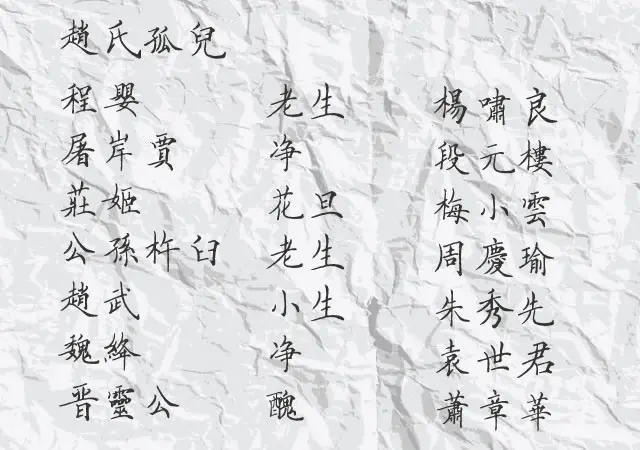 趙氏孤兒
程嬰 老生 楊嘯良
屠岸賈 净 段元樓
莊姬 花旦 梅小雲
公孫杵臼 老生 周慶瑜
趙武 小生 朱秀先
魏絳 净 袁世君
晋靈公 醜 蕭章華